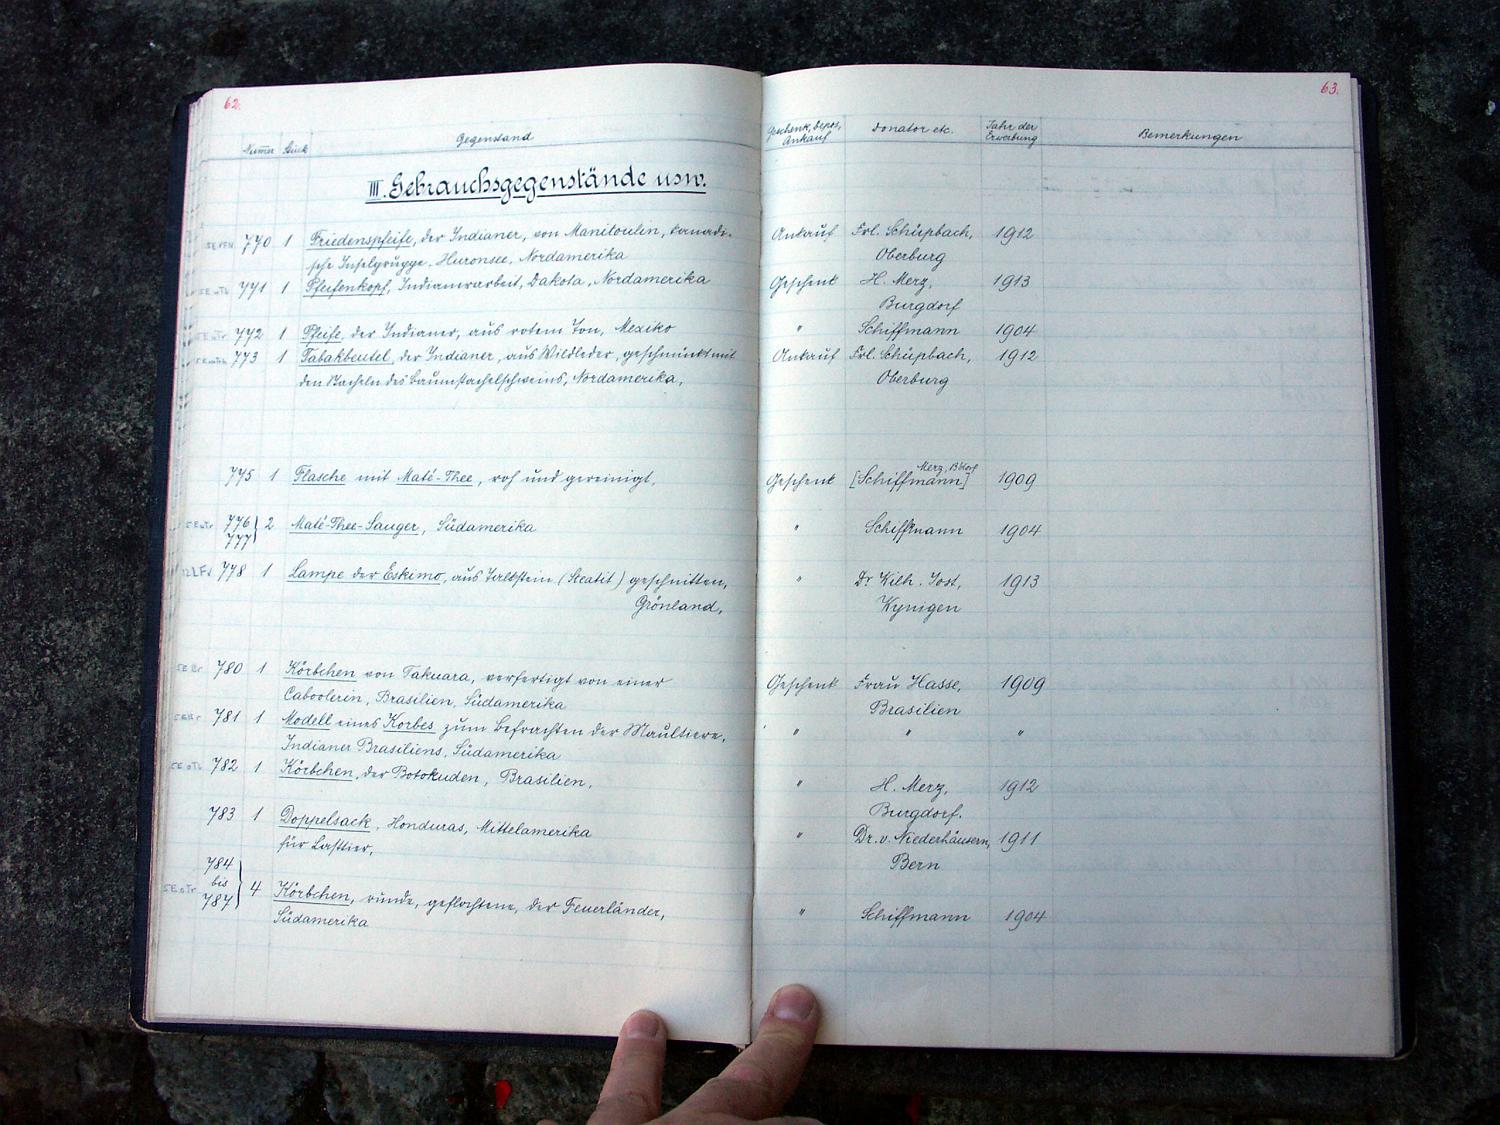 62.
63.
Numr Stück Gegenstand Geschenk, Depos, Ankauf Donator etc. Jahr der Erwerbung Bemerkungen
III. Gebrauchsgegenstände usw.
770 1 Friedenspfeife, der Indianer, von Manitoulin, kanadi- Ankauf Frl. Schüpbach, 1912
sche Inselgruppe. Huronsee, Nordamerika Oberburg
771 1 Pfeifenkopf, Indianerarbeit, Dakota, Nordamerika Geschenk H. Merz, 1913
Burgdorf
772 1 Pfeife, der Indianer, aus rotem Ton, Mexiko " Schiffmann 1904
773 1 Tabakbeutel, der Indianer, aus Wildleder, geschmückt mit Ankauf Frl. Schüpbach, 1912
den Stacheln des Baumstachelschweins, Nordamerika, Oberburg
Merz, Bdorf
775 1 Flasche mit Maté-Thee, roh und gereinigt. Geschenk [Schiffmann] 1909
776 } 2 Maté-Thee-Sauger, Südamerika " Schiffmann 1904
777
778 1 Lampe der Eskimo, aus Talkstein (Steatit) geschnitten, " Dr Wilh. Jost, 1913
Grönland, Wynigen
780 1 Körbchen von Takuara, verfertigt von einer Geschenk Frau Hasse, 1909
Caboclerin, Brasilien, Südamerika Brasilien
781 1 Modell eines Korbes zum Befrachten der Maultiere, " " "
Indianer Brasiliens, Südamerika
782 1 Körbchen, der Botokuden, Brasilien, " H. Merz, 1912
Burgdorf.
783 1 Doppelsack, Honduras, Mittelamerika " Dr. v. Niederhäusern, 1911
für Lasttier, Bern
784
bis } 4 Körbchen, runde, geflochtene, der Feuerländer, " Schiffmann 1904
787 Südamerika